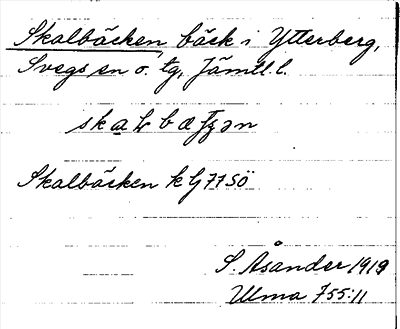 Skalbäcken, bäck i Ytterberg,
Svegs sn o. tg, Jämtl. l.
Skalbäcken k lj 77 SÖ
S. Åsander 1919
Ulma 755:11